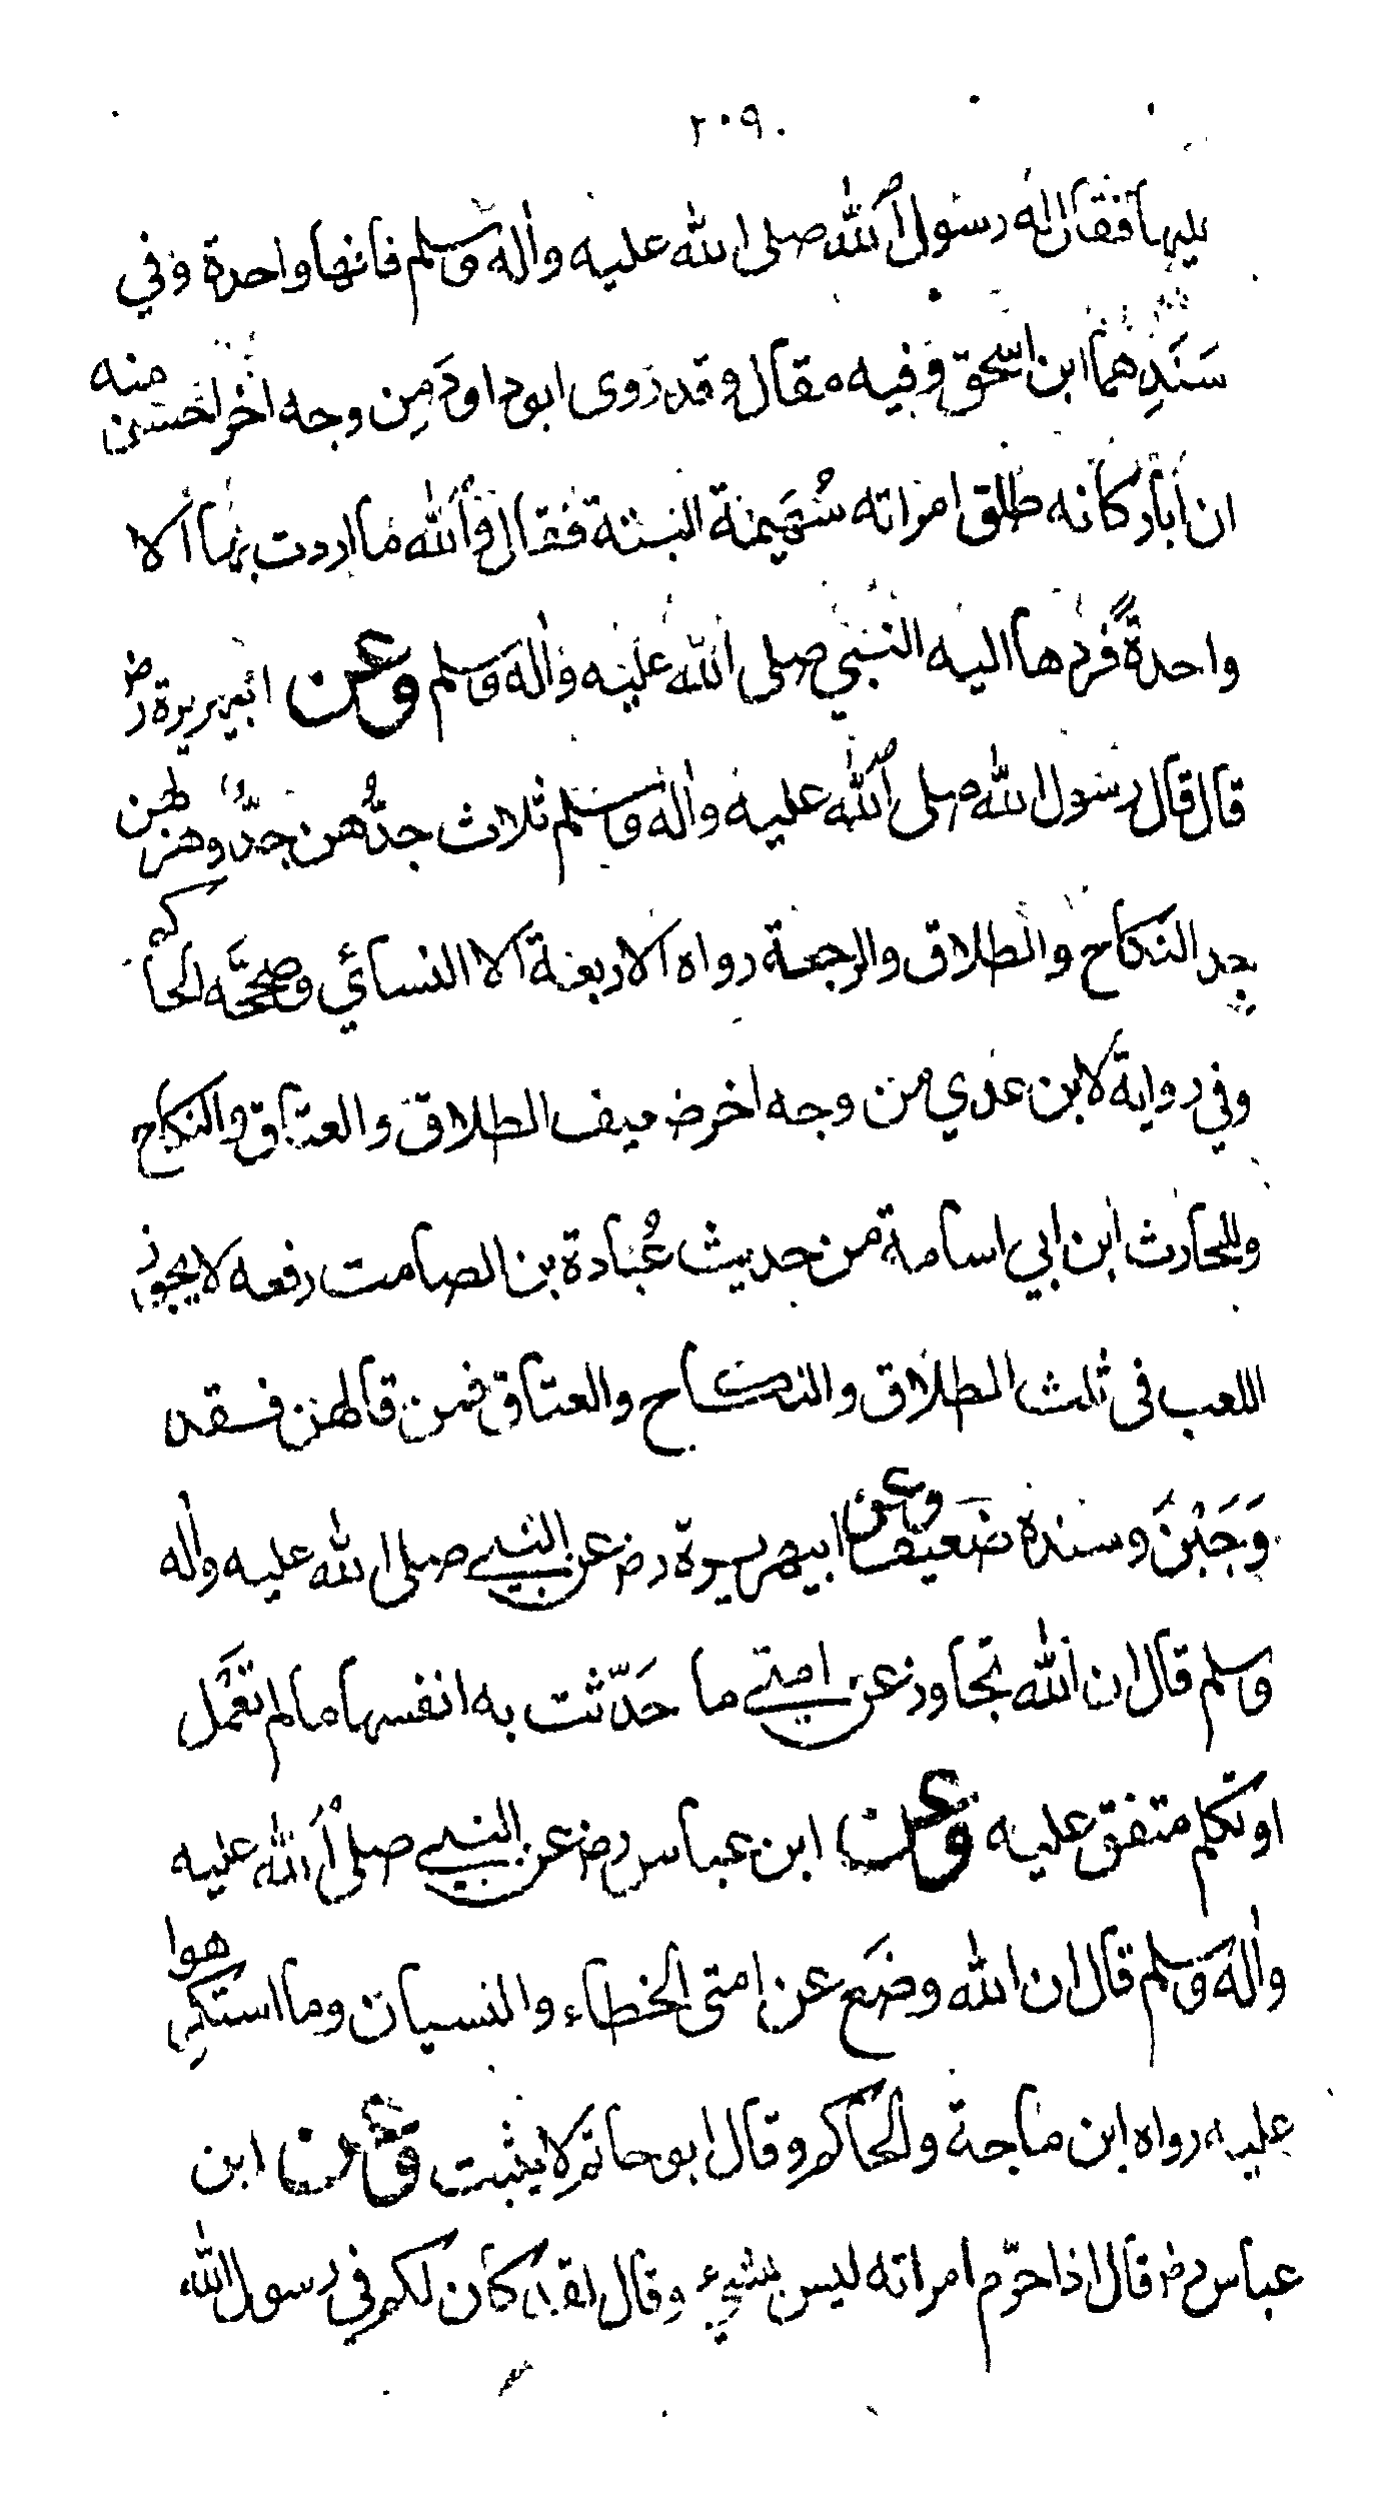 ٢٠٩
عليها فقال له رسول الله صلى الله عليه واله وسلم فانها واحدة وفي
سَنَدِهما ابن اسحق وفيه مقال وقد روى ابو داود مِن وجه اخر احسن منه
ان ابا ركانه طلق امراته سُهَيمة البتة فقال والله ما اردت بها الا
واحدةً فردها اليه النبي صلى الله عليه واله وسلم وعن ابي هريرة رض
قال قال رسول الله صلى الله عليه واله وسلم ثلاث جدُّهن جدٌّ وهزلهن
جد النكاح والطلاق والرجعة رواه الاربعة الا النسائي وصححَّه الحاكم
وفي رواية لابن عدي من وجه اخر ضعيف الطلاق والعتاق والنكاح
وللحارث ابن ابي اسامة من حديث عُبادة بن الصامت رفعه لا يجوز
اللعب فى ثلث الطلاق والنكاح والعتاق فمن قالهن فقد
وَجَبْنَ وسنده ضعيف وعن ابيهريرة رض عن النبي صلى الله عليه واله
وسلم قال ان الله تجاوز عن امتي ما حَدّثت به انفسها مالم تعمَل
او تكلم متفق عليه وعن ابن عباس رض عن النبي صلى الله عليه
واله وسلم قال ان الله وضَع عن امتى الخطاء والنسيان وما استكرِهوا
عليه رواه ابن ماجة والحاكم وقال ابو حاتم لا يثبت وعن ابن
عباس رض قال اذا حرّم امراته ليس بشيء وقال لقد كان لكم في رسول الله